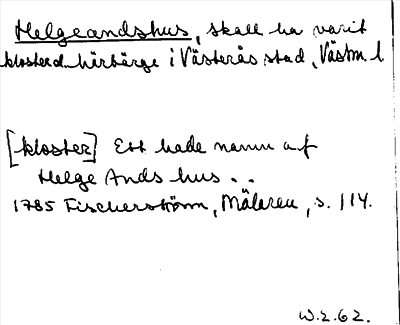 Helgeandshus, skall ha varit
klosterd. härbärge i Västerås stad, Västm. l
[kloster] Ett hade namn af
Helge Ands hus..
1785 Fischerström, Mälaren, s. 114.
W.E.62.